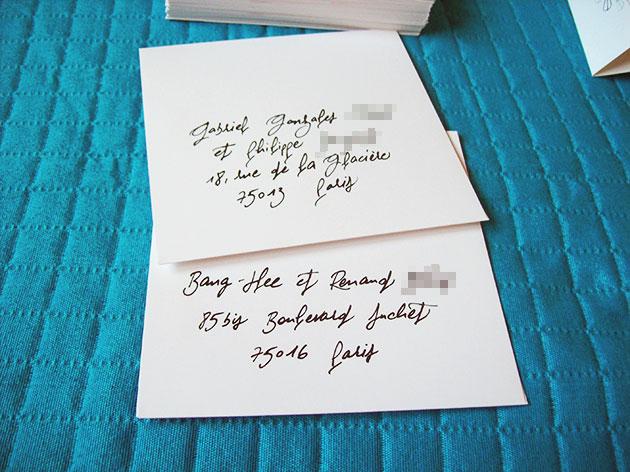 Gabriel Gonzales
et Philippe
18, rue de la Glacière
75013 Paris
Bang-Hee et Renaud
85bis Boulevard Suchet
75016 Paris